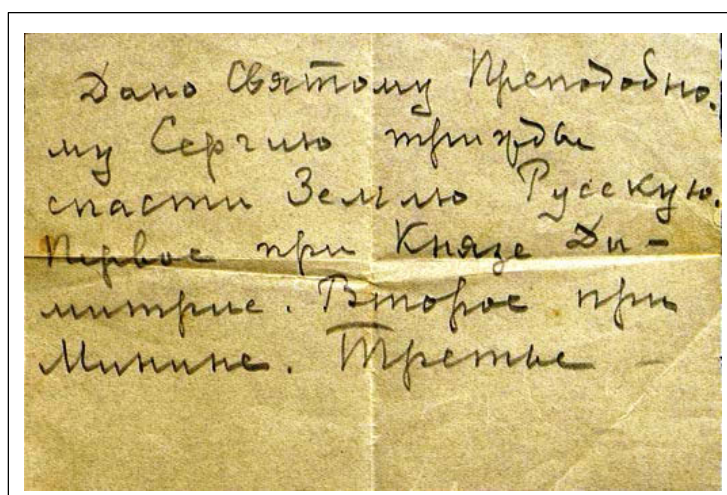 Дано Святому Преподобно.
му Сергию трижды
спасти Землю Русскую.
Первое при Князе Ди-
митрие. Второе при
Минине. Третье –